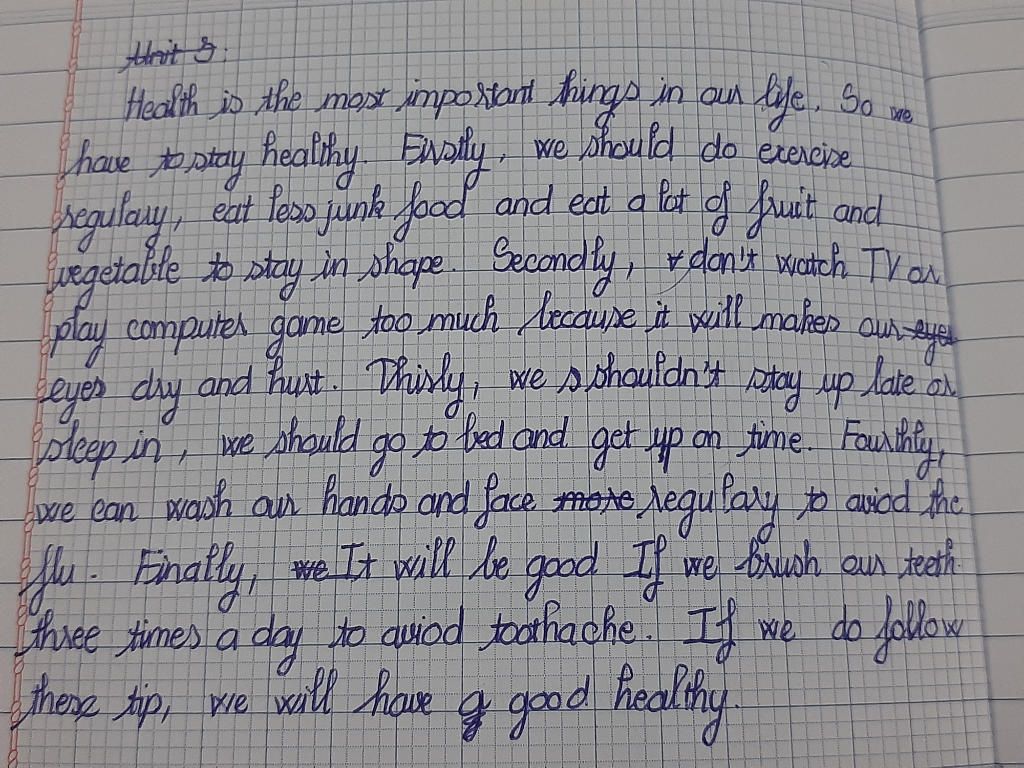 Unit 3.
Health is the most important things in our life. So we
have to stay healthy. Firstly, we should do exercise
regulary, eat less junk food and eat a lot of fruit and
vegetable to stay in shape. Secondly, don't watch TV or
play computer game too much because it will makes our eye
eyes dry and hurt. Thirsly, we s shouldn't stay up late or
sleep in, we should go to bed and get up on time. Fourthly,
we can wash our hands and face more regulary to aviod the
flu. Finally, we It will be good If we brush our teeth
three times a day to aviod toothache. If we do follow
these tip, we will have a good healthy.